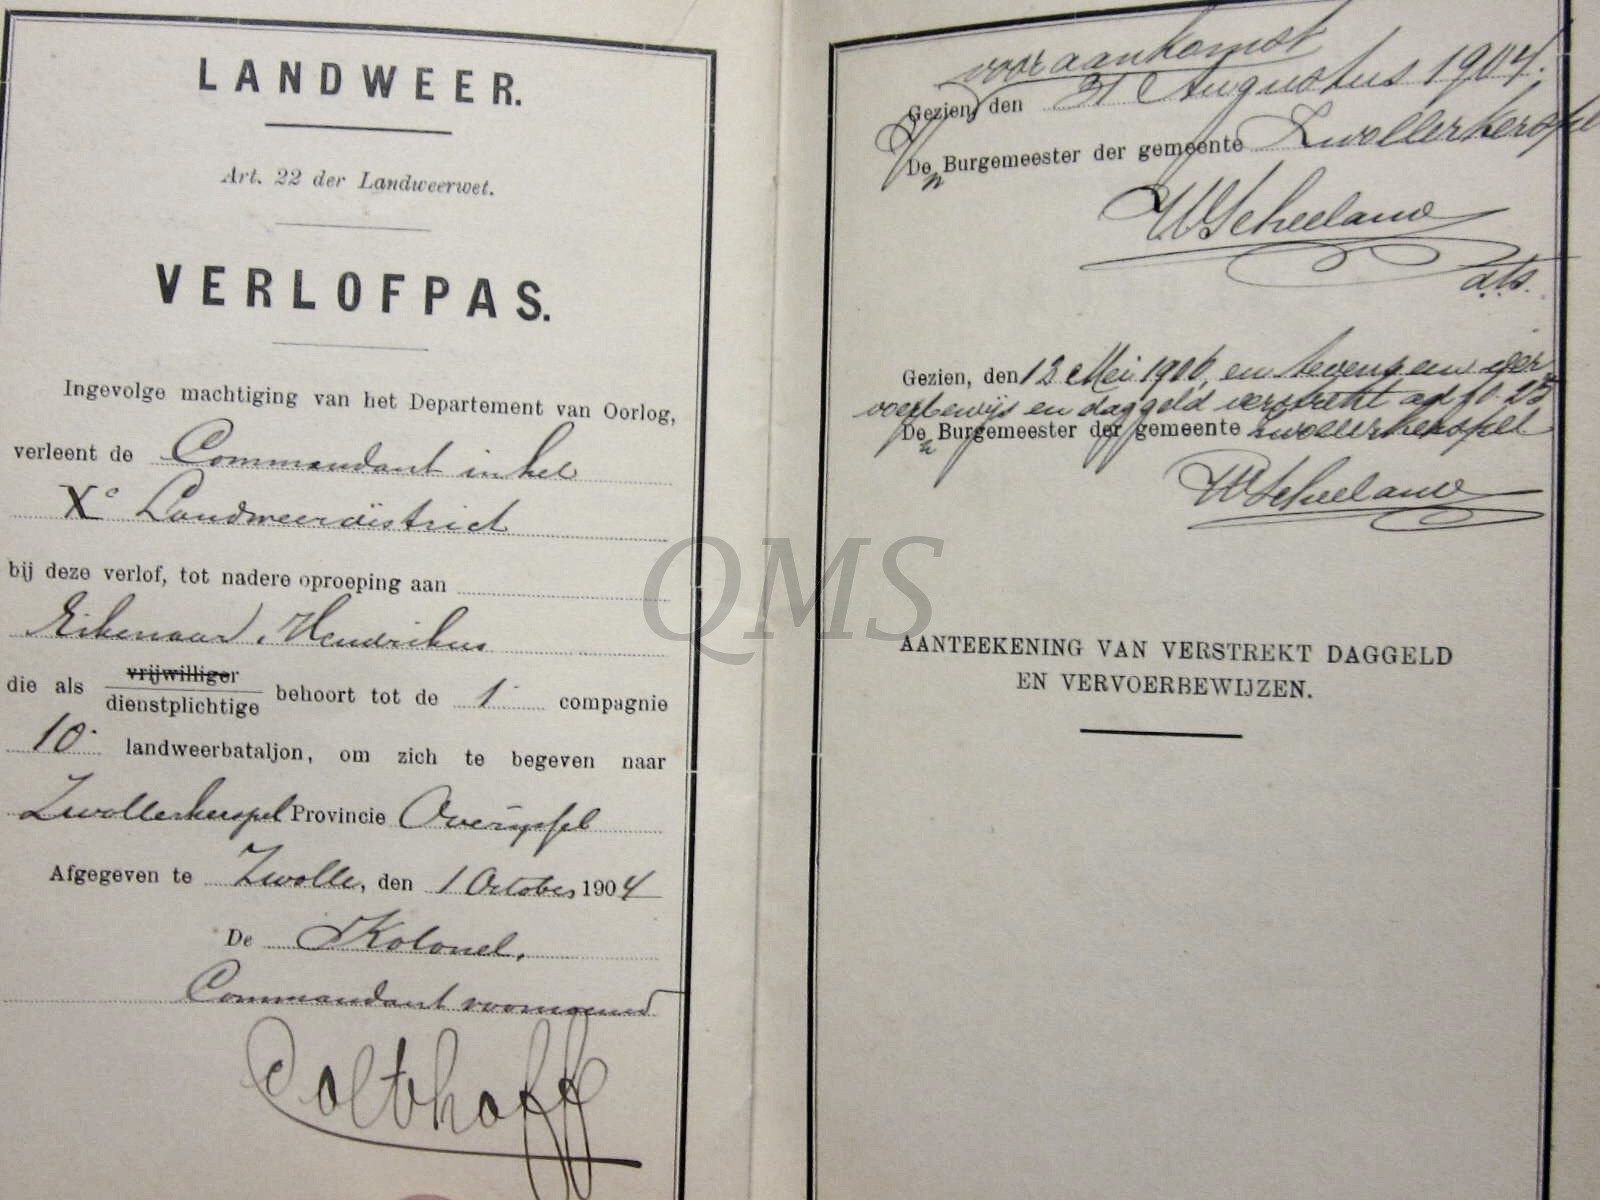 LANDWEER.
Art. 22 der Landweerwet.
VERLOFPAS.
Ingevolge machtiging van het Departement van Oorlog,
verleent de Commandant in het
Xe Landweerdistrict
bij deze verlof, tot nadere oproeping aan
Eikenaar, Hendrikus
die als vrijwilliger
dienstplichtige behoort tot de 1e compagnie
10e landweerbataljon, om zich te begeven naar
Zwollerkerspel Provincie Overijssel
Afgegeven te Zwolle, den 1 October 1904
De Kolonel,
Commandant voornoemd
voor aankomst
Gezien, den 31 Augustus 1904.
De Burgemeester der gemeente Zwollerkerspel
Gezien, den 12 Mei 1906, en tevens een ver
voerbewijs en daggeld verstrekt ad f 0.25
De Burgemeester der gemeente Zwollerkerspel
QMS
AANTEEKENING VAN VERSTREKT DAGGELD
EN VERVOERBEWIJZEN.